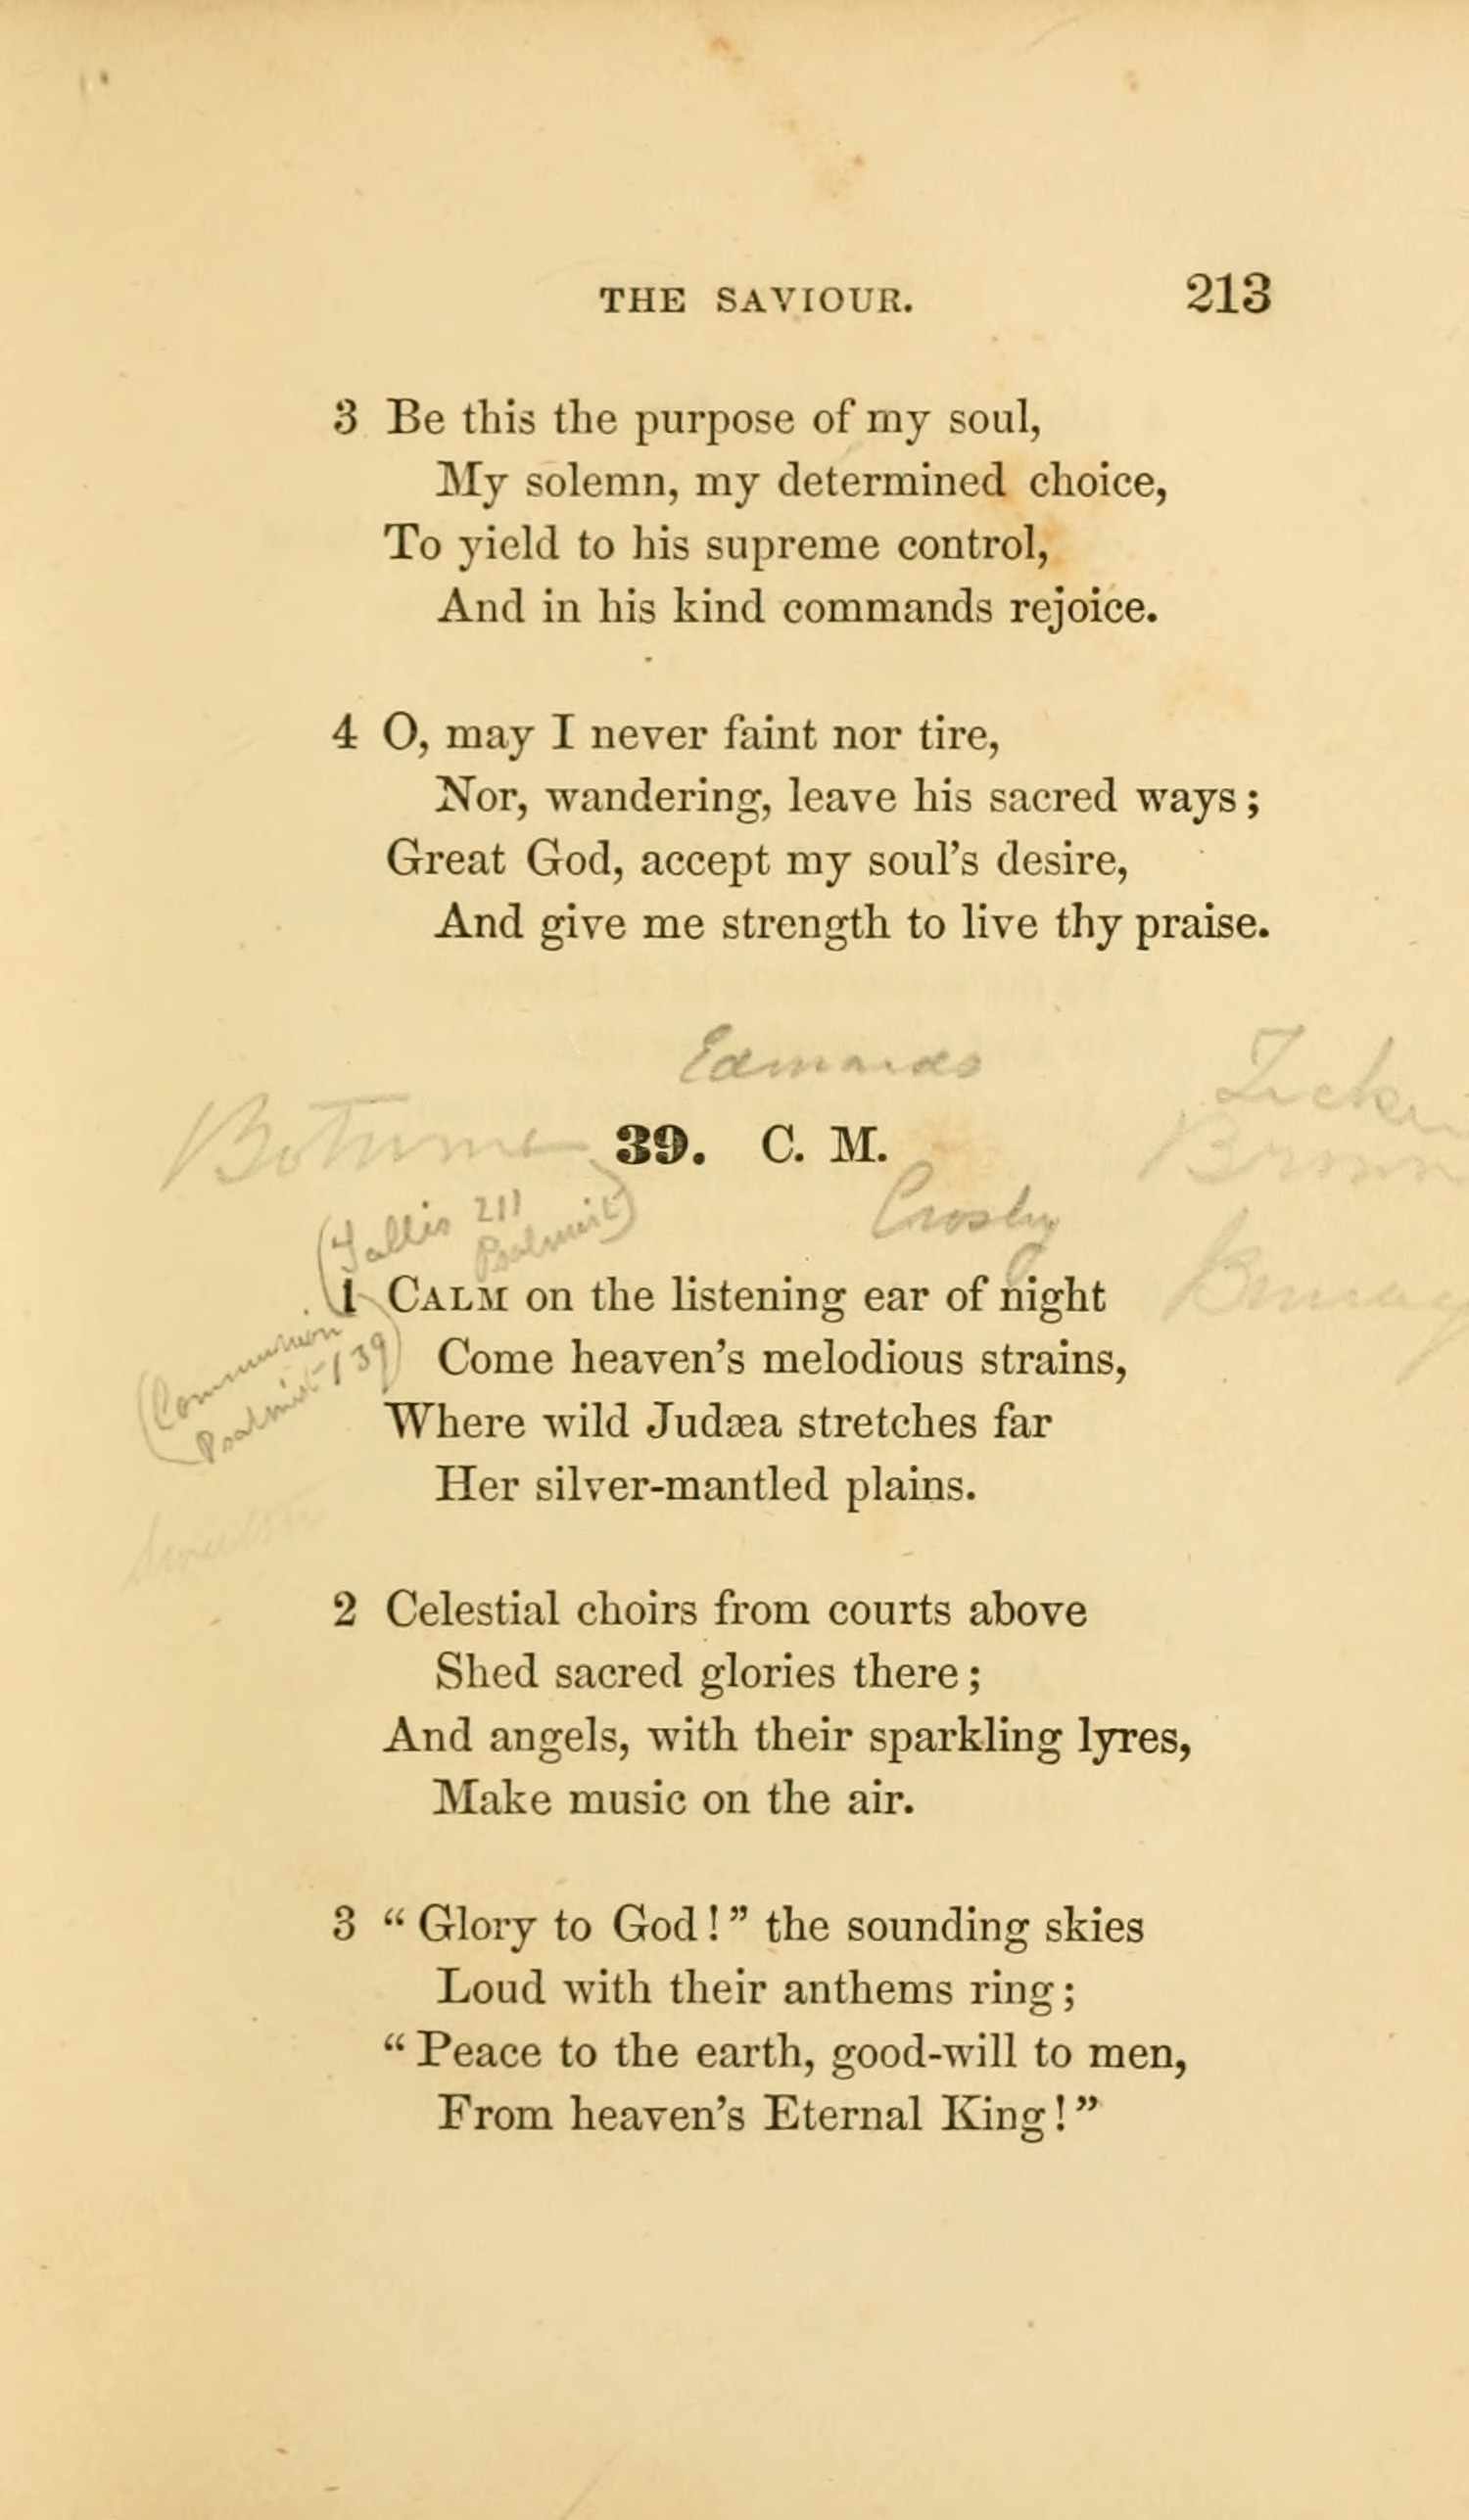 THE SAVIOUR. 213
3 Be this the purpose of my soul,
My solemn, my determined choice,
To yield to his supreme control,
And in his kind commands rejoice.
4 O, may I never faint nor tire,
Nor, wandering, leave his sacred ways;
Great God, accept my soul's desire,
And give me strength to live thy praise.
Edmands
39. C. M.
Brown
Crosby
(Tallis 211
Psalmist)
1 CALM on the listening ear of night
(Communion
Psalmist 139)
Come heaven's melodious strains,
Where wild Judæa stretches far
Her silver-mantled plains.
2 Celestial choirs from courts above
Shed sacred glories there;
And angels, with their sparkling lyres,
Make music on the air.
3 "Glory to God!" the sounding skies
Loud with their anthems ring;
"Peace to the earth, good-will to men,
From heaven's Eternal King!"